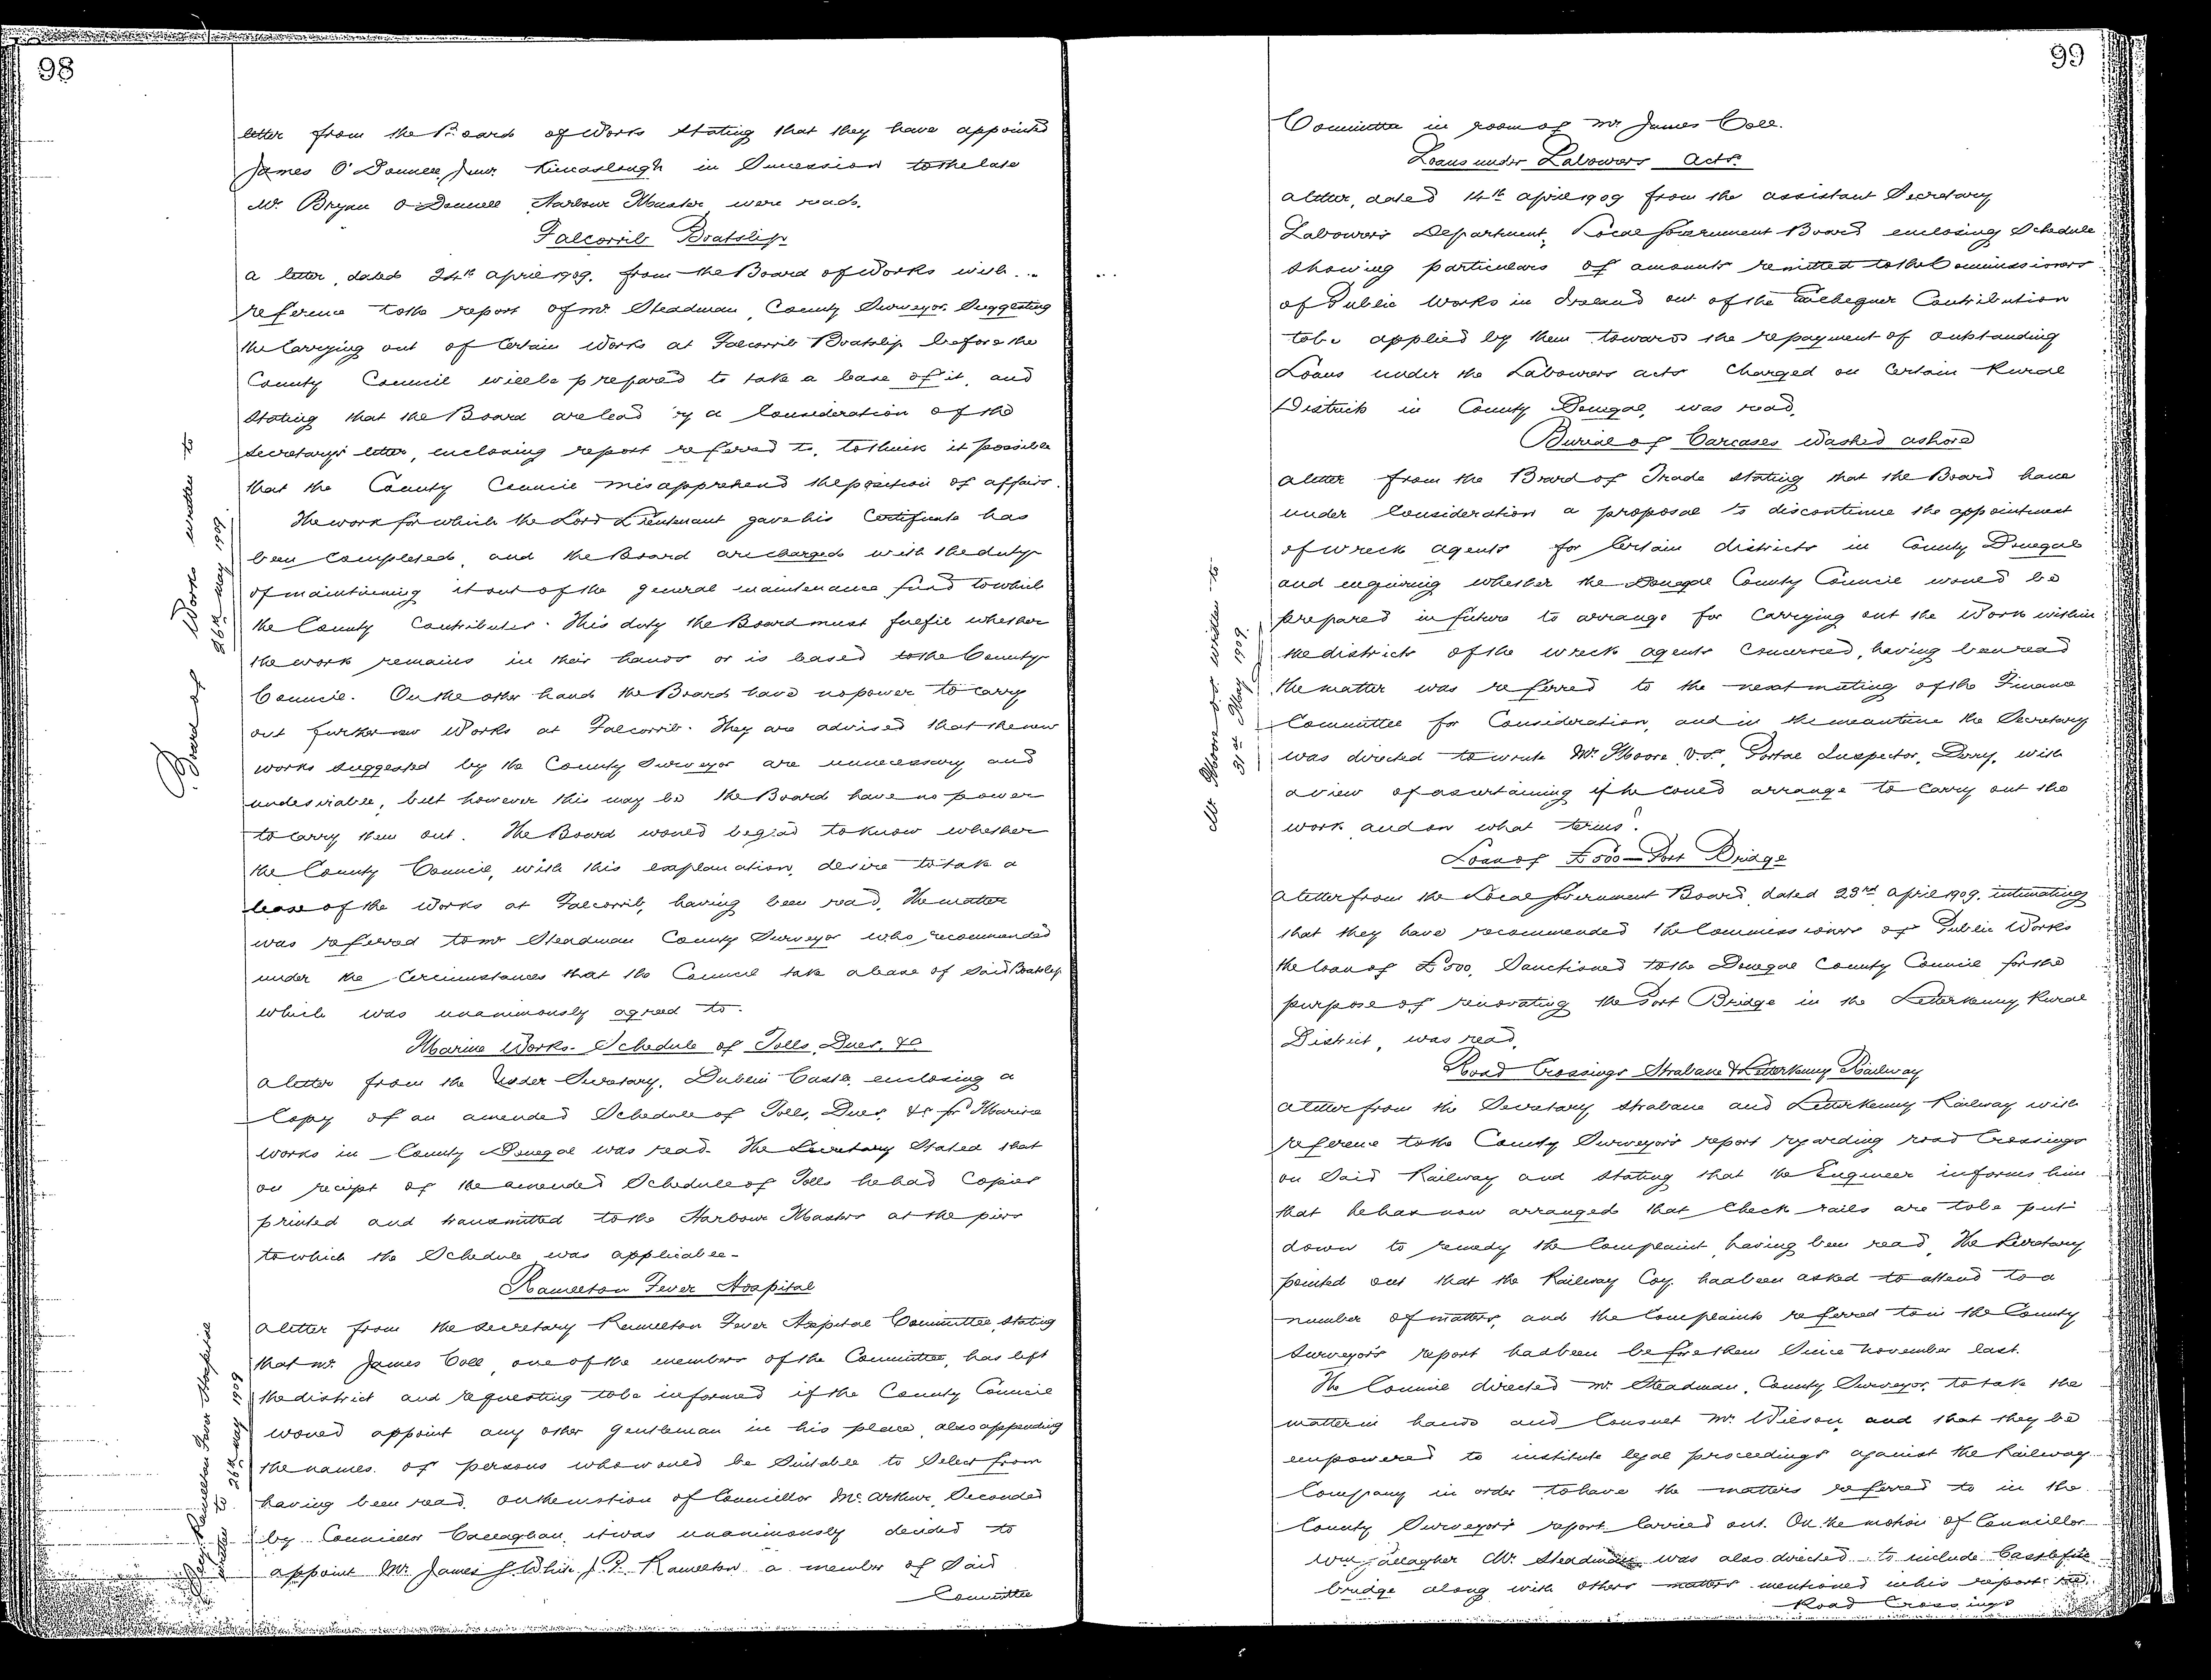 98
letter from the Board of Works stating that they have appointed
James O'Donnell, Junr. Kincaslough in Succession to the late
Mr. Bryan O'Donnell Harbour Master, were read.
Falcorrib Boatslip
a letter, dated 24th april 1909. from the Board of Works with
reference to the report of Mr. Steadman County Surveyor Suggesting
the Carrying out of Certain Works at Falcorrib Boatslip before the
County Council will be prepared to take a lease of it, and
Stating that the Board are lead by a Consideration of the
Secretary's letter, enclosing report referred to, to think it possible
that the County Council misapprehend the position of affairs.
The work for which the Lord Lieutenant gave his Certificate has
been Completed, and the Board are charged with the duty
of maintaining it out of the general maintenance fund to which
the County Contributes. This duty the Board must fulfil whether
the work remains in their hands or is leased to the County
Council. On the other hand the Board have no power to carry
out further new Works at Falcorrib. They are advised that the new
works suggested by the County Surveyor are unnecessary and
undesirable, but however this may be the Board have no power
to carry them out. The Board would be glad to know whether
the County Council, with this explanation, desire to take a
lease of the Works at Falcorrib, having been read, The matter
was referred to Mr Steadman County Surveyor who recommended
under the Circumstances that the Council take a lease of Said Boatslip
which was unanimously agreed to.
Board of Works written to
26th may 1909.
Marine Works - Schedule of Tolls, Dues, &c
a letter from the Under-Secretary, Dublin Castle, enclosing a
Copy of an amended Schedule of Tolls, Dues, &c for Marine
Works in County Donegal was read. The Secretary Stated that
on receipt of the amended Schedule of Tolls he had Copies
printed and transmitted to the Harbour Masters at the piers
to which the Schedule was applicable.
Ramelton Fever Hospital
a letter from the Secretary Ramelton Fever Hospital Committee, stating
that Mr. James Coll, one of the members of the Committee, has left
the district and requesting to be informed if the County Council
would appoint any other gentleman in his place, also appending
the names of persons who would be Suitable to Select from
having been read. On the motion of Councillor McArthur, Seconded
by Councillor Callaghan, it was unanimously decided to
appoint Mr. James S. White, J.P. Ramelton a member of Said
Committee
Secy Ramelton Fever Hospital
written to 26th may 1909
99
Committee in room of Mr James Coll.
Loans under Labourers Acts.
a letter, dated 14th april 1909 from the assistant Secretary
Labourers Department, Local Government Board enclosing Schedule
showing particulars of amounts remitted to the Commissioners
of Public Works in Ireland out of the Exchequer Contribution
to be applied by them towards the repayment of outstanding
Loans under the Labourers acts Charged on Certain Rural
Districts in County Donegal, was read.
Burial of Carcases washed ashore
a letter from the Board of Trade stating that the Board have
under Consideration a proposal to discontinue the appointment
of wreck agents for Certain districts in County Donegal
and enquiring whether the Donegal County Council would be
prepared in future to arrange for Carrying out the Work within
the districts of the wreck agents Concerned, having been read
the matter was referred to the next meeting of the Finance
Committee for Consideration, and in the meantime the Secretary
was directed to write Mr. Moore V.S. Portal Inspector, Derry, with
a view of ascertaining if he could arrange to Carry out the
work, and on what terms?
Mr Moore V.S. written to
31st May 1909.
Loan of £500 - Port Bridge
a letter from the Local Government Board, dated 23rd april 1909. intimating
that they have recommended the Commissioners of Public Works
the loan of £500, Sanctioned to the Donegal County Council for the
purpose of renovating the Port Bridge in the Letterkenny Rural
District, was read.
Road Crossings Strabane & Letterkenny Railway
a letter from the Secretary Strabane and Letterkenny Railway with
reference to the County Surveyor's report regarding road Crossings
on Said Railway and Stating that the Engineer informs him
that he has now arranged that Check rails are to be put
down to remedy the Complaint, having been read, The Secretary
pointed out that the Railway Coy. had been asked to attend to a
number of matters, and the Complaints referred to in the County
Surveyor's report had been before them Since November last.
The Council directed Mr. Steadman, County Surveyor, to take the
matter in hands and Consult Mr. Wilson, and that they be
empowered to institute legal proceedings against the Railway
Company in order to have the matters referred to in the
County Surveyor's report Carried out. On the motion of Councillor
Wm Gallagher Mr. Steadman was also directed to include
bridge along with others matters mentioned in his report re
Road Crossings